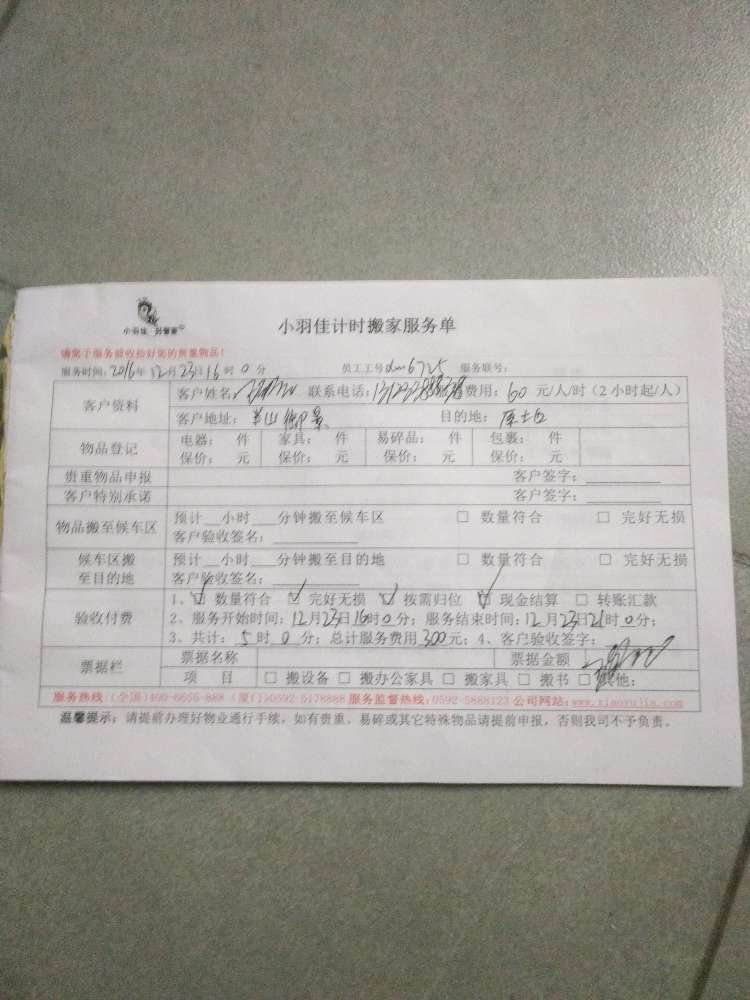 小羽佳 好管家
小羽佳计时搬家服务单
请您于服务前收拾好您的贵重物品！
服务时间：2016年12月23日16时0分 员工工号 服务联号：
客户资料 客户姓名： 联系电话： 费用：60元/人/时（2小时起/人）
客户地址： 御景 目的地：
物品登记 电器： 件 家具： 件 易碎品： 件 包裹： 件
保价： 元 保价： 元 保价： 元 保价： 元
贵重物品申报 客户签字：________
客户特别承诺 客户签字：________
物品搬至候车区 预计__小时___分钟搬至候车区 □ 数量符合 □ 完好无损
客户验收签名：________
候车区搬至目的地 预计__小时___分钟搬至目的地 □ 数量符合 □ 完好无损
客户验收签名：________
验收付费 1、☑ 数量符合 ☑ 完好无损 ☑ 按需归位 ☑ 现金结算 □ 转账汇款
2、服务开始时间：12月23日16时0分；服务结束时间：12月23日21时0分；
3、共计：5时0分；总计服务费用300元；4、客户验收签字：
票据栏 票据名称 票据金额
项 目 □ 搬设备 □ 搬办公家具 □ 搬家具 □ 搬书 □ 其他：
服务热线：（全国）400-6656-888（厦门）0592-5178888 服务监督热线：0592-5888123 公司网站：www.xiaoyujia.com
温馨提示：请提前办理好物业通行手续，如有贵重、易碎或其它特殊物品请提前申报，否则我司不予负责。